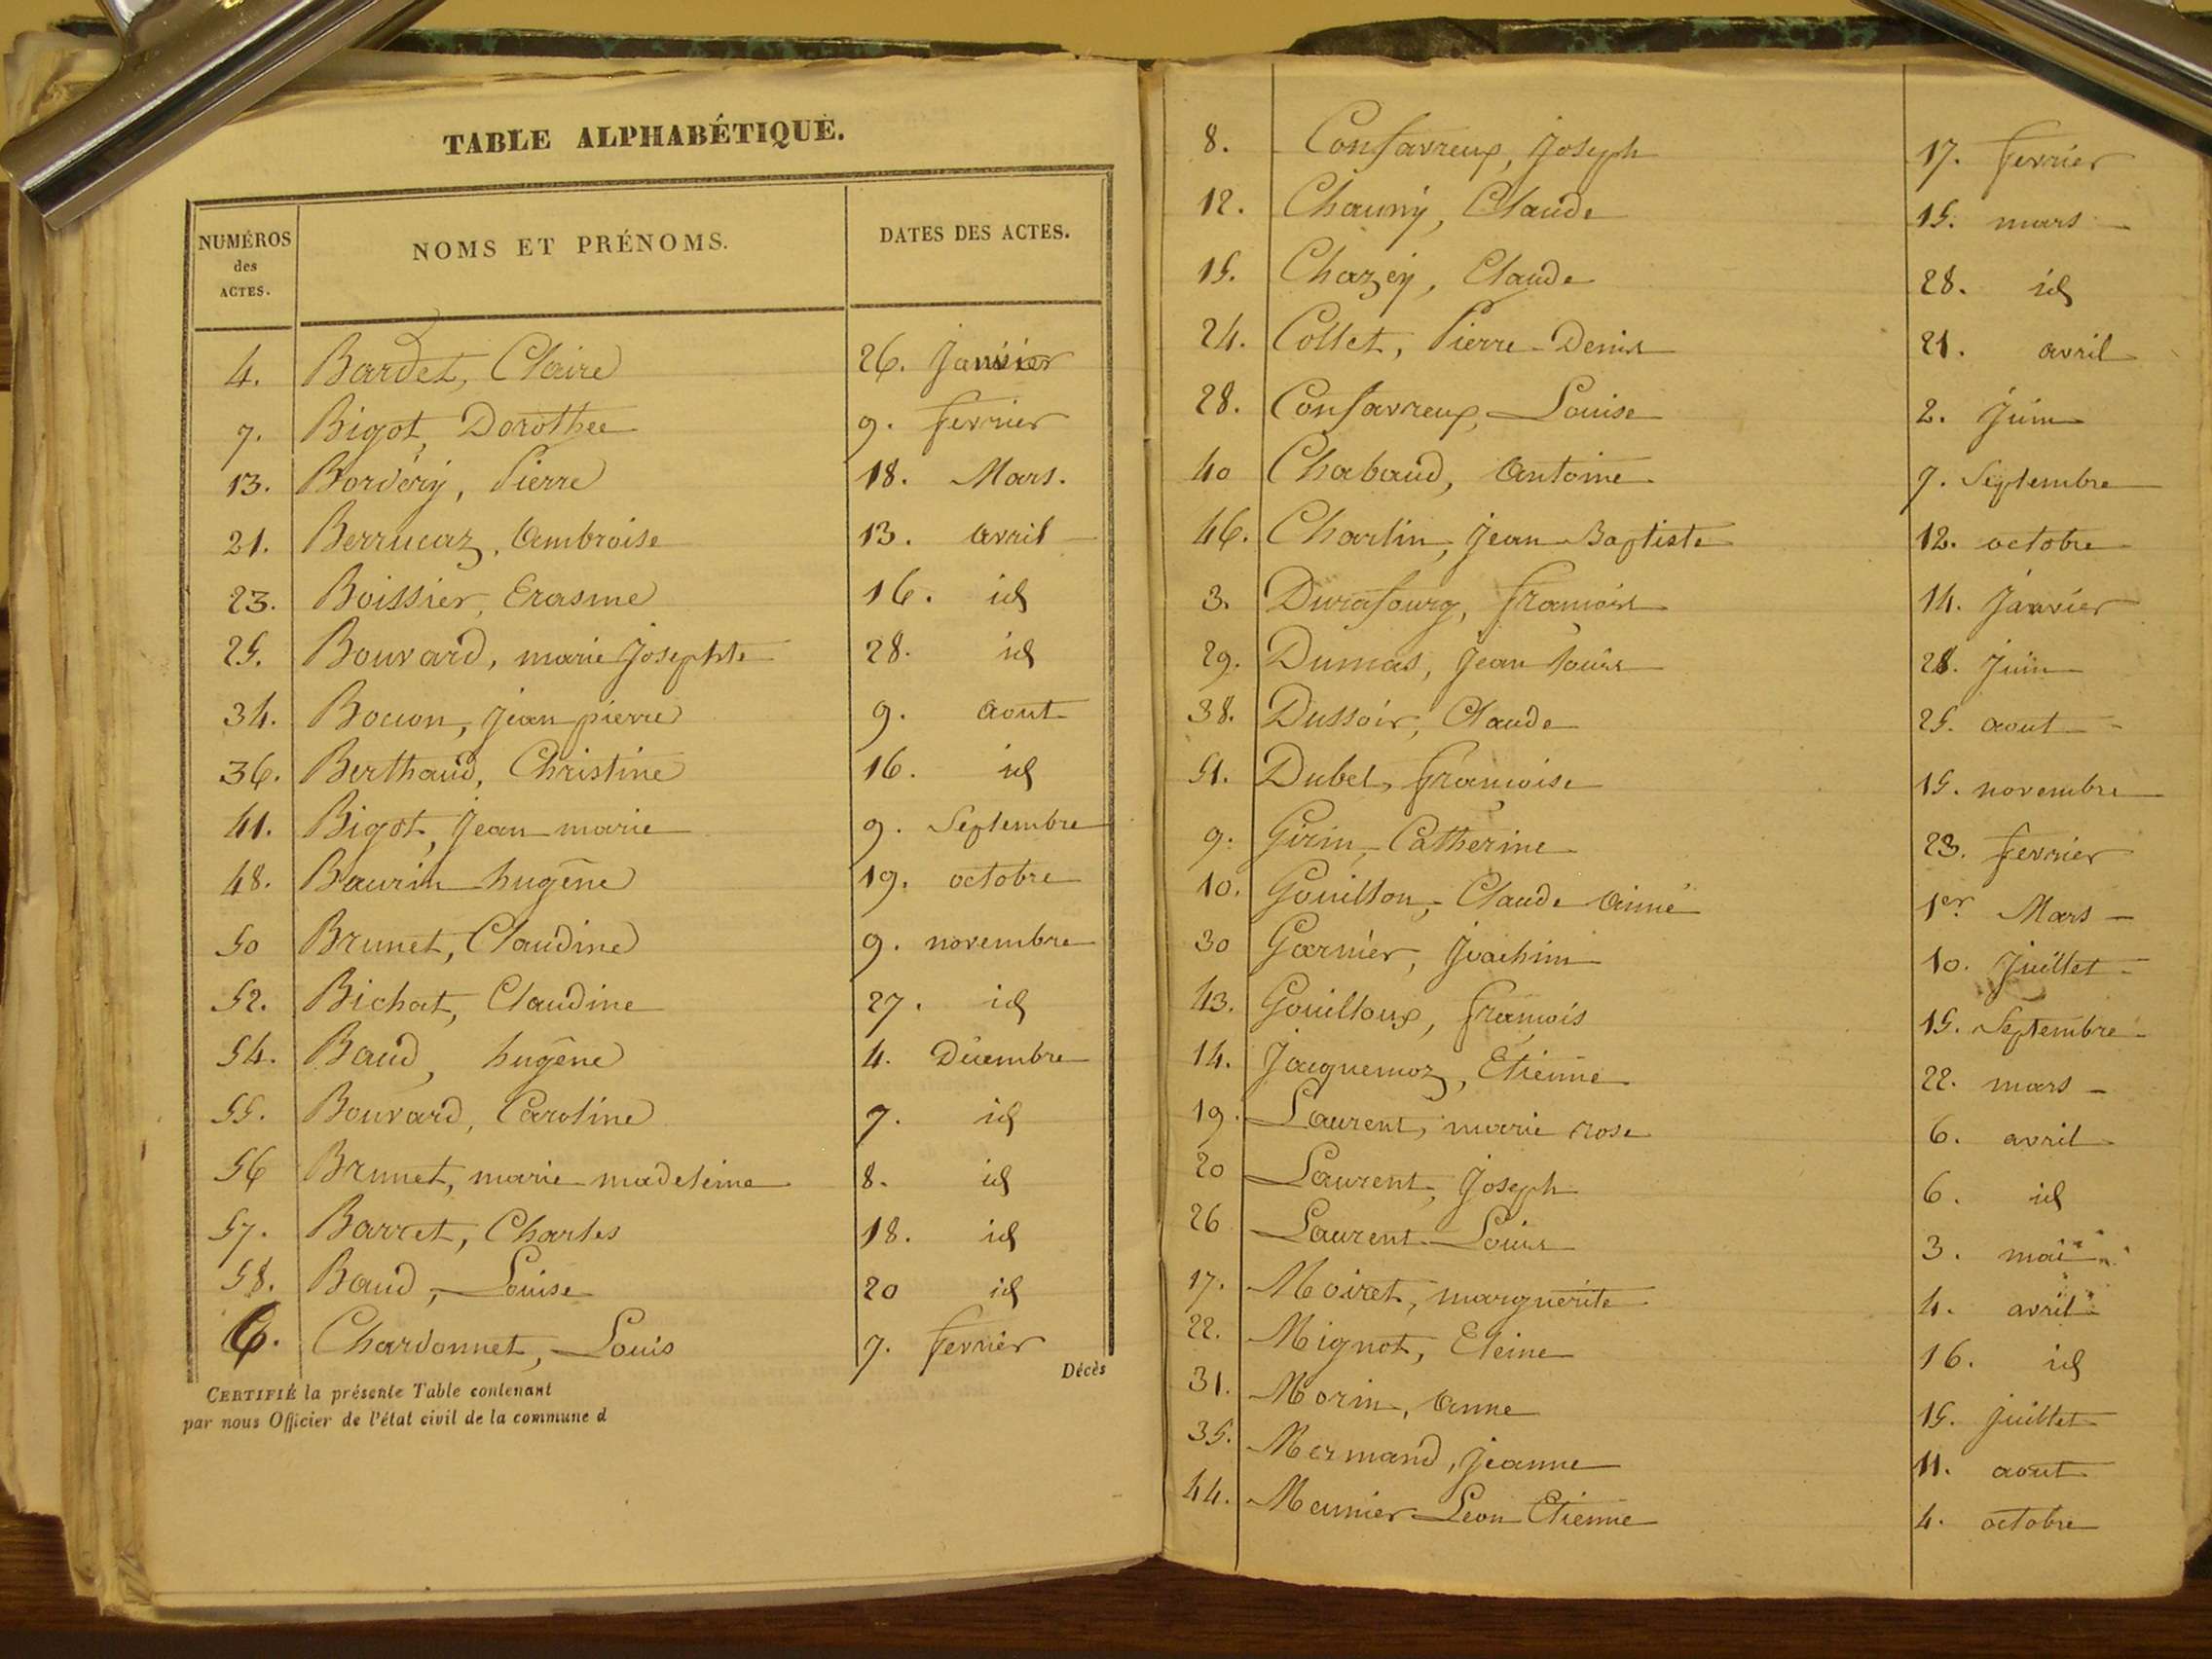 TABLE ALPHABÉTIQUE.
NUMÉROS des ACTES. NOMS ET PRÉNOMS. DATES DES ACTES.
4. Bardet, Claire 26. Janvier
7. Bigot, Dorothee 9. fevrier
13. Bordery, Pierre 18. Mars.
21. Berrucaz, Ambroise 13. avril
23. Boissier, Erasme 16. id
25. Bouvard, marie Josephte 28. id
34. Bocion, Jean pierre 9. aout
36. Berthaud, Christine 16. id
41. Bigot, Jean marie 9. Septembre
48. Baurin hugêne 19. octobre
50 Brunet, Claudine 9. novembre
52. Bichat, Claudine 27. id
54. Baud, hugêne 4. Décembre
55. Bouvard, Caroline 7. id
56 Brunet, marie madeleine 8. id
57. Barret, Charles 18. id
58. Baud, Louise 20 id
6. Chardonnet, Louis 7. fevrier
Décès
CERTIFIÉ la présente Table contenant
par nous Officier de l'état civil de la commune d
8. Confavreux, Joseph 17. fevrier
12. Chauny, Claude 15. mars
15. Chazéy, Claude 28. id
24. Collet, Pierre-Denis 21. avril
28. Confavreux, Louise 2. Juin
40 Chabaud, Antoine 7. Septembre
46. Charlin, Jean Baptiste 12. octobre
3. Durafourg, françois 14. Janvier
29. Dumas, Jean Louis 28. Juin
38. Dussoir, Claude 25. aout
51. Dubel, françoise 15. novembre
9. Girin, Catherine 23. fevrier
10. Gouillon, Claude Aimé 1er Mars
30 Garnier, Joachim 10. Juillet
43. Gouilloux, françois 15. Septembre
14. Jacquemoz, Etienne 22. mars
19. Laurent, marie rose 6. avril
20 Laurent, Joseph 6. id
26 Laurent Louis 3. mai
17. Moiret, marguerite 4. avril
22. Mignot, Eleine 16. id
31. Morin, Anne 15. Juillet
35. Mermand, Jeanne 11. aout
44. Meunier Léon Etienne 4. octobre